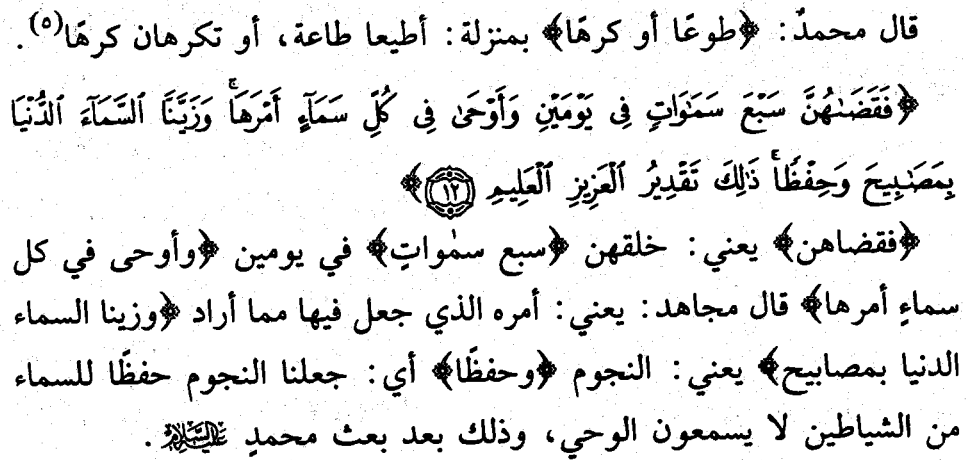 قال محمدٌ: ﴿طوعًا أو كرهًا﴾ بمنزلة: أطيعا طاعة، أو تكرهان كرهًا(٥).
﴿فَقَضَىٰهُنَّ سَبْعَ سَمَٰوَاتٖ فِى يَوْمَيْنِ وَأَوْحَىٰ فِى كُلِّ سَمَآءٍ أَمْرَهَاۚ وَزَيَّنَّا ٱلسَّمَآءَ ٱلدُّنْيَا
بِمَصَٰبِيحَ وَحِفْظٗاۚ ذَٰلِكَ تَقْدِيرُ ٱلْعَزِيزِ ٱلْعَلِيمِ ١٢﴾
﴿فقضاهن﴾ يعني: خلقهن ﴿سبع سمٰواتٍ﴾ في يومين ﴿وأوحى في كل
سماءٍ أمرها﴾ قال مجاهد: يعني: أمره الذي جعل فيها مما أراد ﴿وزينا السماء
الدنيا بمصابيح﴾ يعني: النجوم ﴿وحفظًا﴾ أي: جعلنا النجوم حفظًا للسماء
من الشياطين لا يسمعون الوحي، وذلك بعد بعث محمدٍ عليه السلام.